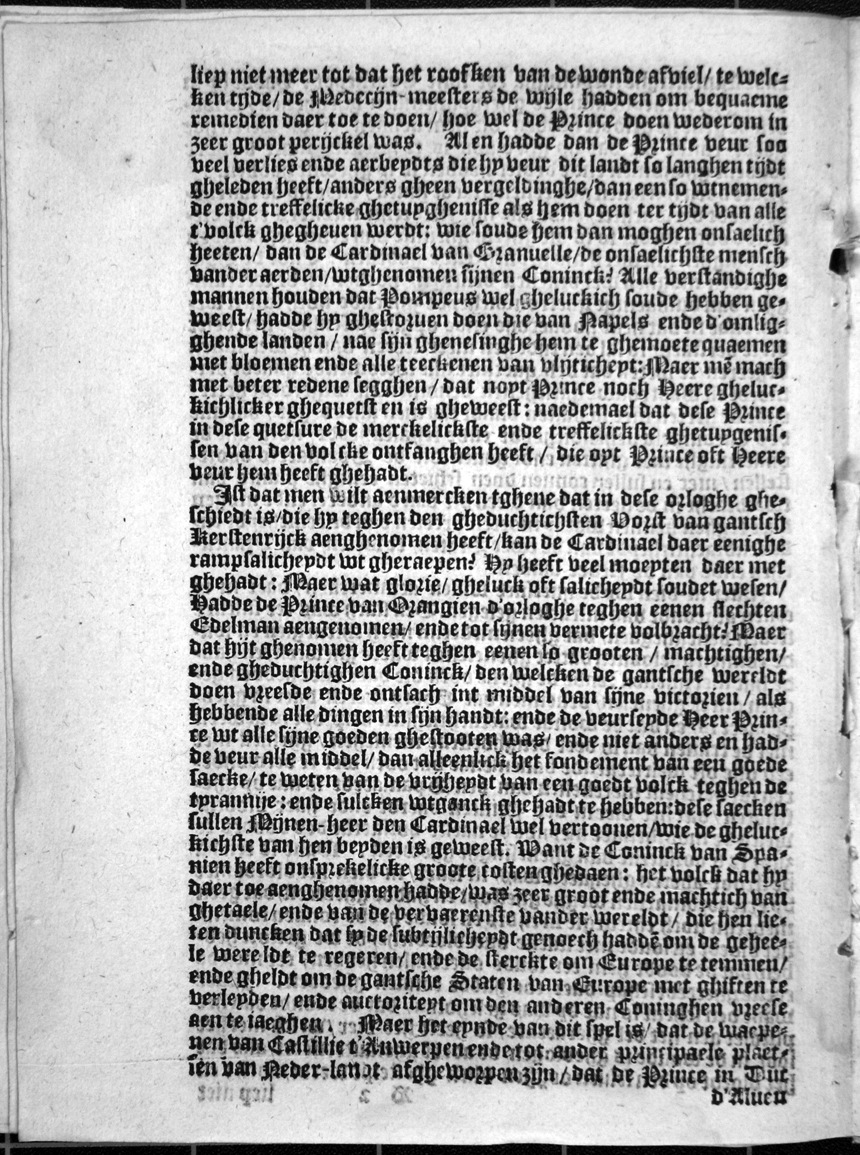 liep niet meer tot dat het roofken van de wonde afviel/ te welc⸗
ken tijde/ de Medecijn-meesters de wijle hadden om bequaeme
remedien daer toe te doen/ hoe wel de Prince doen wederom in
zeer groot perijckel was. Al en hadde dan de Prince veur soo
veel verlies ende aerbeydts die hy veur dit landt so langhen tijdt
gheleden heeft/ anders gheen vergeldinghe/ dan een so wtnemen⸗
de ende treffelicke ghetuyghenisse als hem doen ter tijdt van alle
t'volck ghegheuen werdt: wie soude hem dan moghen onsaelich
heeten/ dan de Cardinael van Granuelle/ de onsaelichste mensch
vander aerden/ wtghenomen sijnen Coninck? Alle verstandighe
mannen houden dat Pompeus wel gheluckich soude hebben ge⸗
weest/ hadde hy ghestoruen doen die van Napels ende d'omlig⸗
ghende landen / nae sijn ghenesinghe hem te ghemoete quaemen
met bloemen ende alle teeckenen van vlijticheyt: Maer mē mach
met beter redene segghen / dat noyt Prince noch Heere gheluc⸗
kichlicker ghequetst en is gheweest: naedemael dat dese Prince
in dese quetsure de merckelickste ende treffelickste ghetuygenis⸗
sen van den volcke ontfanghen heeft / die oyt Prince oft Heere
veur hem heeft ghehadt.
Ist dat men wilt aenmercken tghene dat in dese orloghe ghe⸗
schiedt is/ die hy teghen den gheduchtichsten Vorst van gantsch
Kerstenrijck aenghenomen heeft/ kan de Cardinael daer eenighe
rampsalicheydt wt gheraepen? Hy heeft veel moeyten daer met
ghehadt: Maer wat glorie/ gheluck oft salicheydt soudet wesen/
Hadde de Prince van Orangien d'orloghe teghen eenen slechten
Edelman aengenomen/ ende tot sijnen vermete volbracht? Maer
dat hijt ghenomen heeft teghen eenen so grooten / machtighen/
ende gheduchtighen Coninck/ den welcken de gantsche wereldt
doen vreesde ende ontsach int middel van sijne victorien / als
hebbende alle dingen in sijn handt: ende de veurseyde Heer Prin⸗
ce wt alle sijne goeden ghestooten was/ ende niet anders en had⸗
de veur alle middel/ dan alleenlick het fondement van een goede
saecke/ te weten van de vrijheydt van een goedt volck teghen de
tyrannije: ende sulcken wtganck ghehadt te hebben: dese saecken
sullen Mijnen-heer den Cardinael wel vertoonen/ wie de gheluc⸗
kichste van hen beyden is geweest. Want de Coninck van Spa⸗
nien heeft onsprekelicke groote costen ghedaen: het volck dat hy
daer toe aenghenomen hadde/ was zeer groot ende machtich van
ghetaele/ ende van de vervaerenste vander wereldt / die hen lie⸗
ten duncken dat sy de subtijlicheydt genoech haddē om de gehee⸗
le wereldt te regeren/ ende de sterckte om Europe te temmen/
ende gheldt om de gantsche Staten van Europe met ghiften te
verleyden/ ende auctoriteyt om den anderen Coninghen vreese
aen te iaeghen. Maer het eynde van dit spel is/ dat de waepe⸗
nen van Castillie t'Anwerpen ende tot ander principaele plaet⸗
sen van Neder-landt afgheworpen zijn/ dat de Prince in Duc
d'Aluen